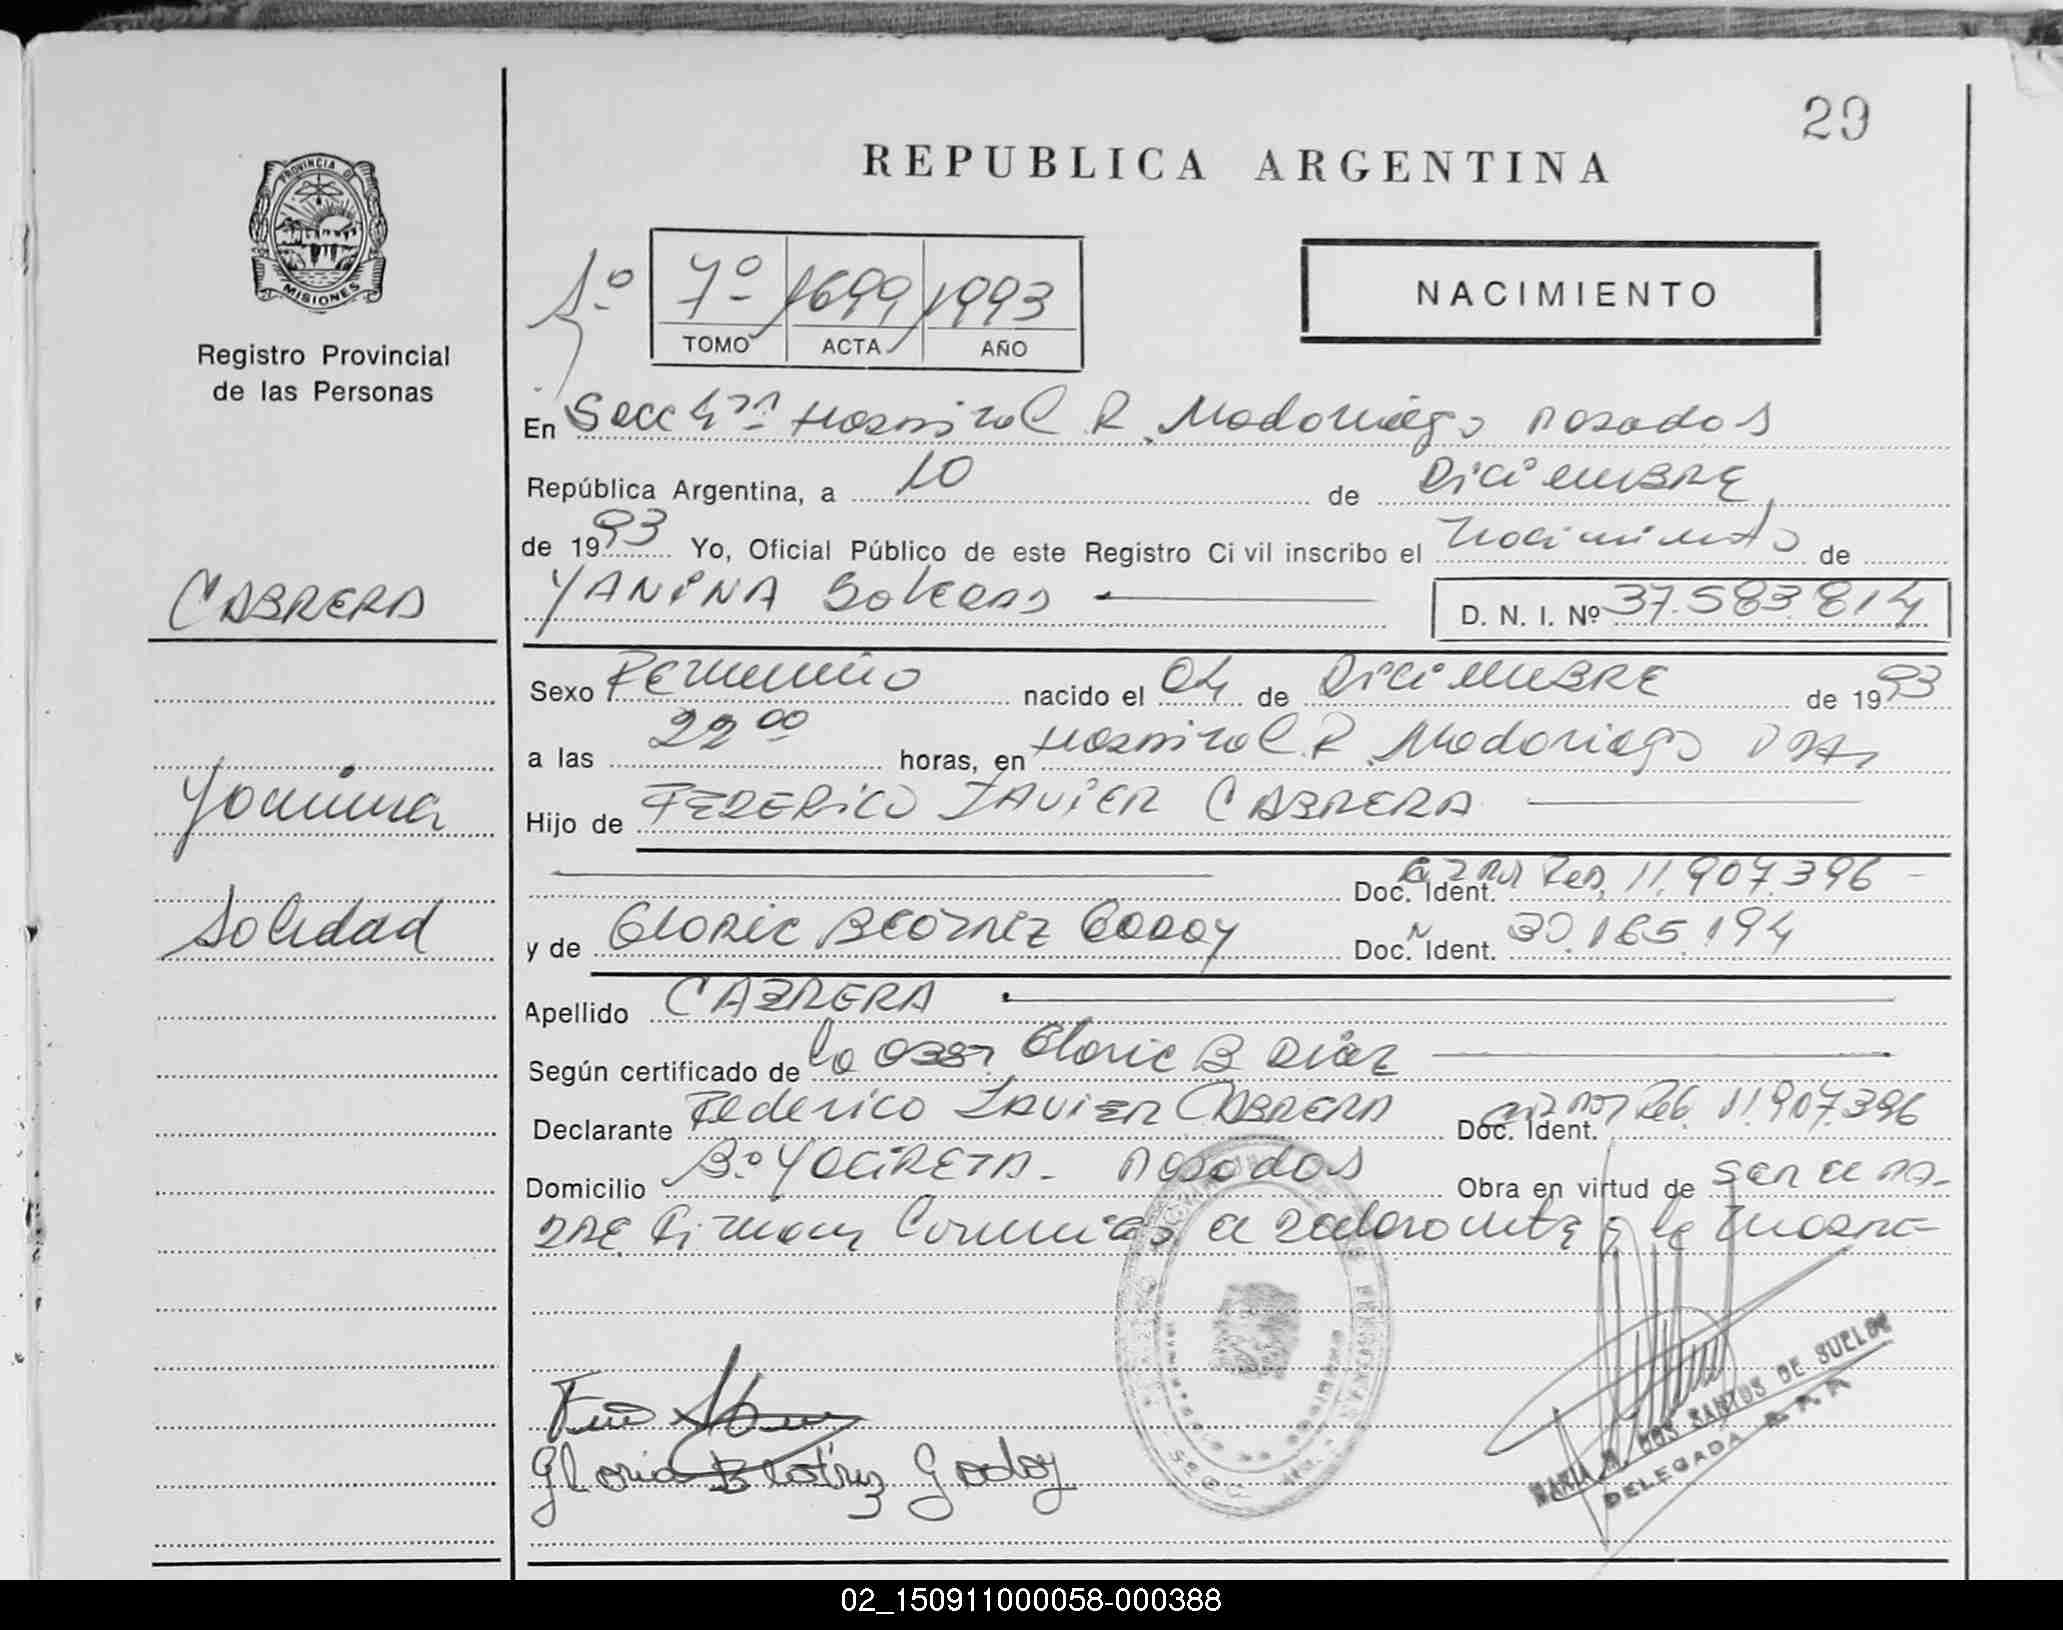 29
REPUBLICA ARGENTINA
PROVINCIA DE
MISIONES
Registro Provincial
de las Personas
7º 1699 1993
TOMO ACTA AÑO
NACIMIENTO
En Secc 4ta Hospital R. Madariaga Posadas
República Argentina, a 10 de Diciembre
de 1993 Yo, Oficial Público de este Registro Civil inscribo el Nacimiento de
CABRERA
YANINA Soledad D. N. I. Nº 37.583.814
Sexo Femenino nacido el 04 de Diciembre de 1993
a las 22 00 horas, en Hospital R. Madariaga
Yanina
Hijo de FEDERICO JAVIER CABRERA
Doc. Ident. 11.907.396
Soledad
y de Gloria Beatriz Godoy Doc. Ident. 30.165.194
Apellido CABRERA
Según certificado de la Obst Gloria B Diaz
Declarante Federico Javier CABRERA Doc. Ident. 11.907.396
Domicilio Bº YACIRETA - Posadas Obra en virtud de ser el pa-
dre. Firman Conmigo el declarante y la
Gloria Beatriz Godoy
MARIA DOS SANTOS DE SUELDO
DELEGADA
02_150911000058-000388